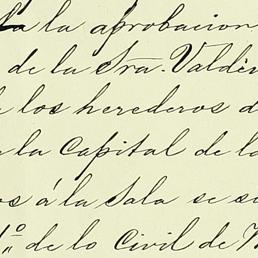 la aprobacion
de la Sra. Valdi
los herederos d
la Capital de la
os á la Sala se
1º de lo Civil de